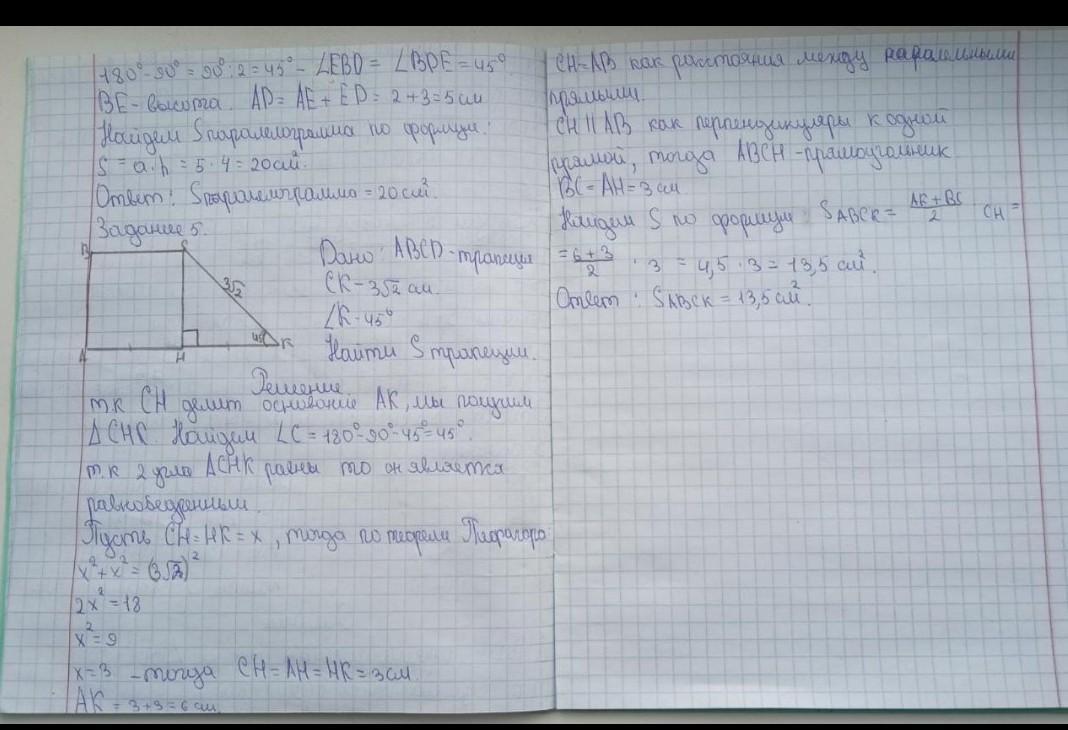 180°-90° = 90°:2 = 45° - ∠EBD = ∠BDE = 45°
BE - высота. AD = AE + ED = 2+3=5см
Найдем Sпаралелограмма по формуле:
S = a·h = 5·4 = 20см².
Ответ: Sпаралелограмма = 20см².
Задание 5.
B C
3√2
45°
A H K
Дано: ABCD - трапеция
CK - 3√2 см.
∠K - 45°
Найти S трапеции.
Решение
т.к CH делит основание AK, мы получим
△CHK. Найдем ∠C = 180°-90°-45°=45°.
т.к 2 угла △CHK равны то он является
равнобедренным.
Пусть CH = HK = x, тогда по теореме Пифагора:
x²+x² = (3√2)²
2x² = 18
x² = 9
x=3 - тогда CH = AH = HK = 3см
AK = 3+3 = 6 см.
CH = AB как расстояния между паралельными
прямыми.
CH || AB как перпендикуляры к одной
прямой, тогда ABCH - прямоугольник
BC = AH = 3 см
Найдем S по формуле: SABCK = AK + BC / 2 CH =
= 6+3 / 2 · 3 = 4,5 · 3 = 13,5 см².
Ответ: SABCK = 13,5 см².